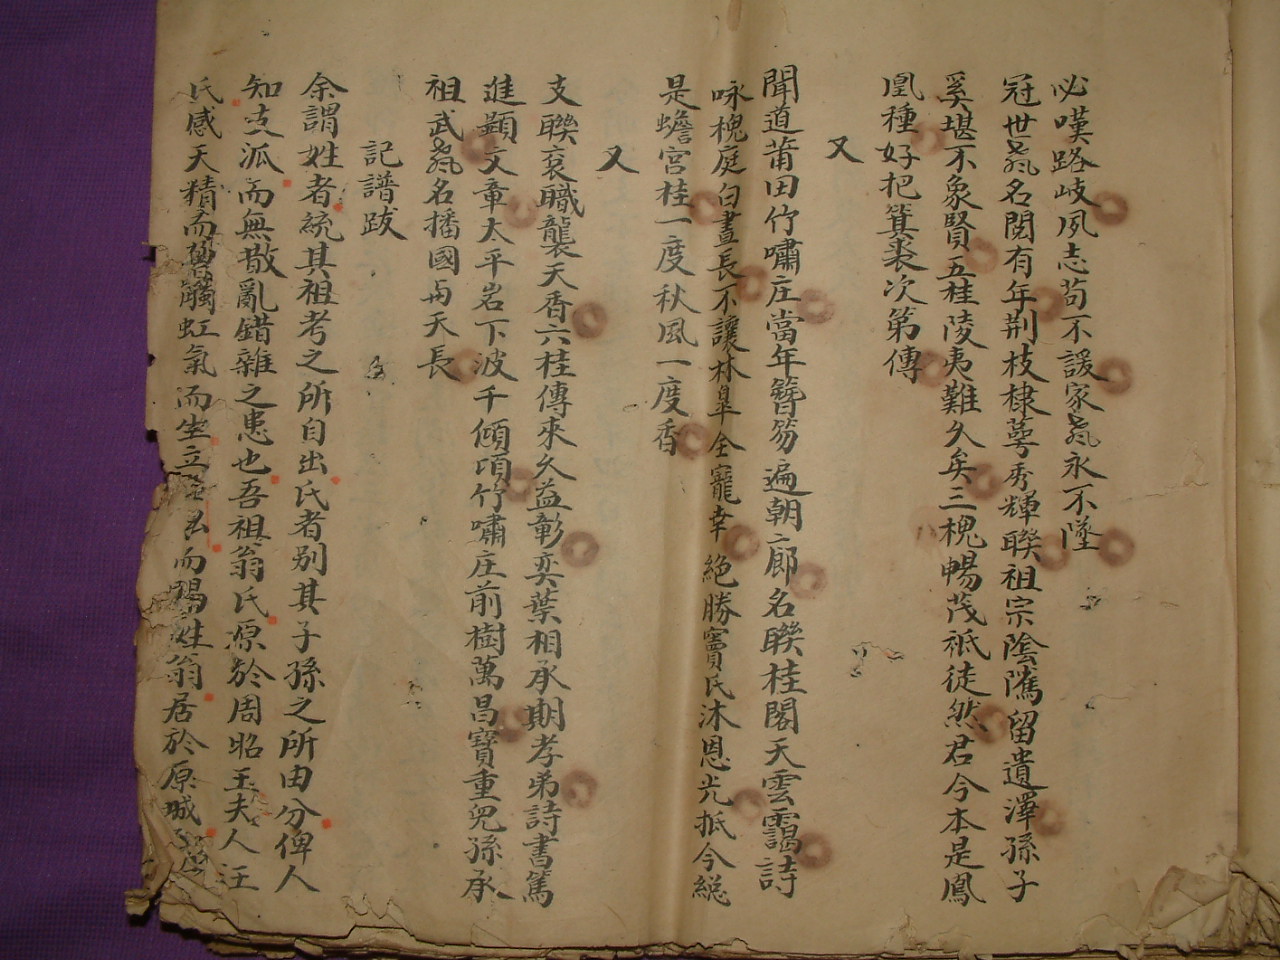 必嘆路岐夙志苟不諼家声永不墜
冠世声名閲有年荆枝棣萼秀輝聯祖宗陰隲留遺澤孫子
奚堪不象賢五桂陵夷難久矣三槐暢茂祗徒然君今本是鳳
凰種好把箕裘次第傳
又
聞道莆田竹嘯庄當年簪笏遍朝廊名聯桂閣天雲靄詩
咏槐庭白晝長不讓林皐全寵幸絶勝竇氏沐恩光抵今総
是蟾宫桂一度秋風一度香
又
支聯衮職襲天香六桂傳來久益彰奕葉相承期孝弟詩書篤
進顯文章太平岩下波千傾竹嘯庄前樹萬昌寳重児孫承
祖武声名播國與天長
記譜跋
余謂姓者統其祖考之所自出氏者别其子孫之所由分俾人
知支派而無散亂錯雜之患也吾祖翁氏源於周昭王夫人汪
氏感天精而觸虹氣而生立而賜姓翁居於原城